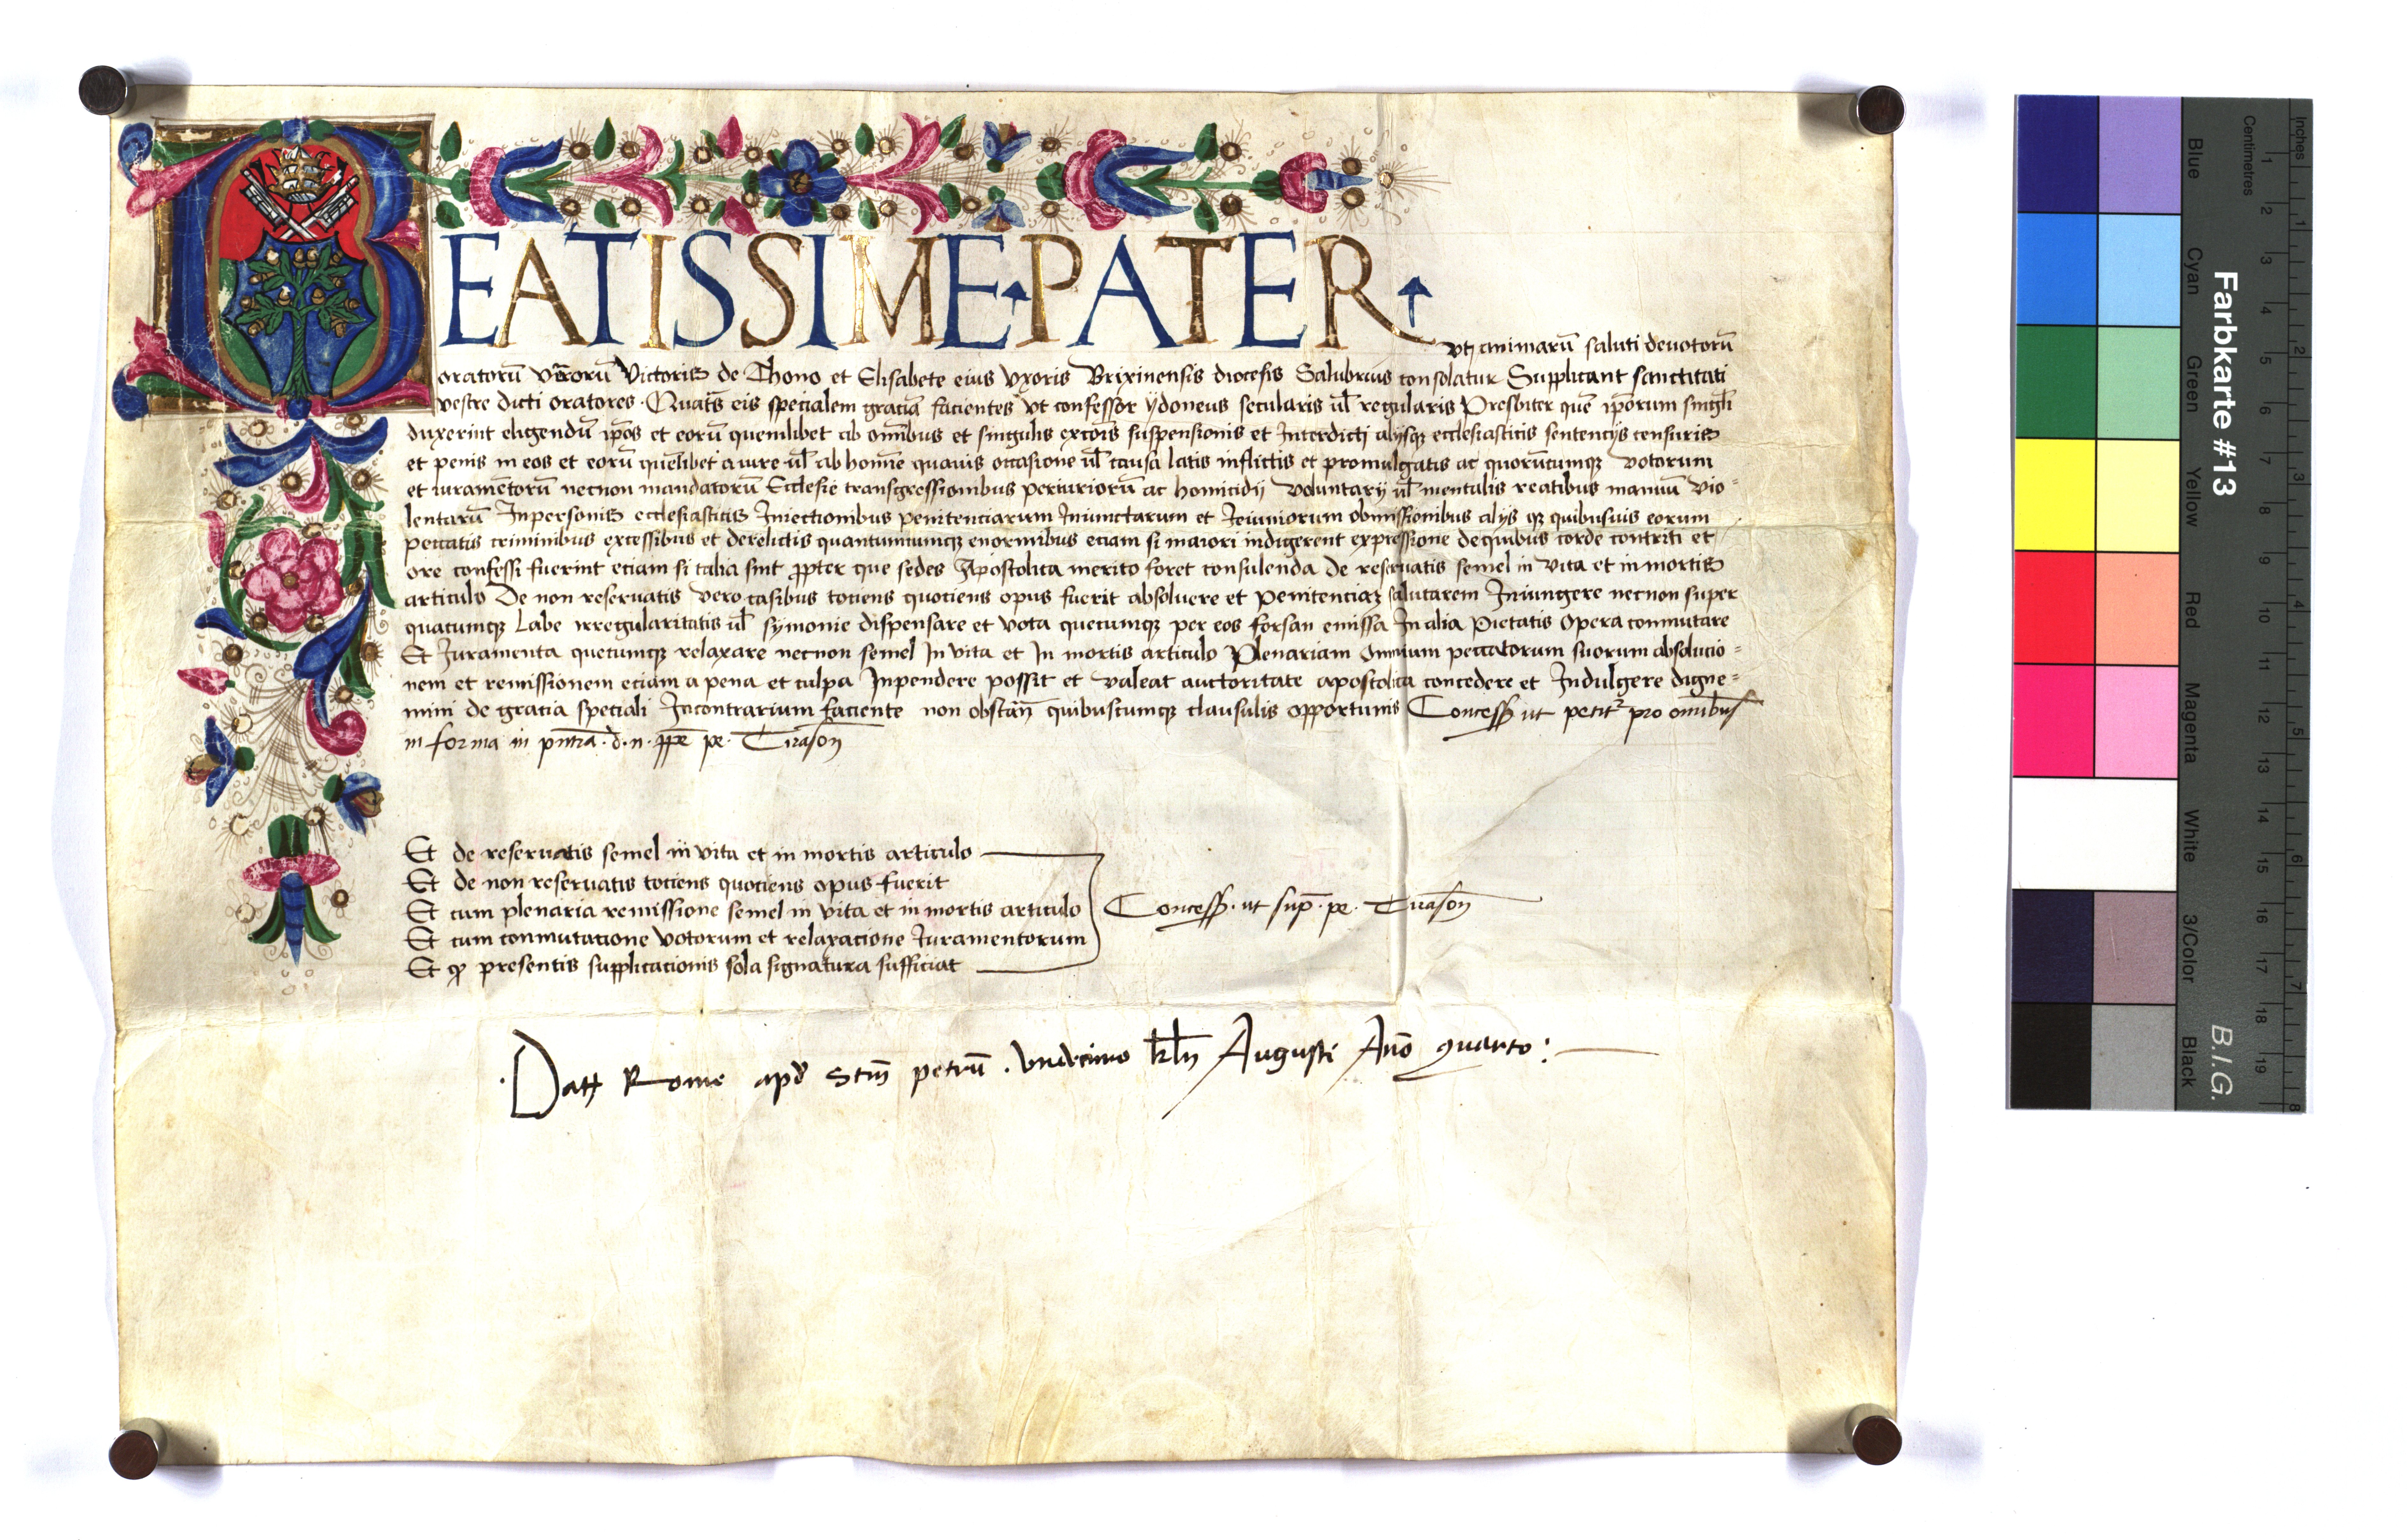 BEATISSIME PATER
Vt animarū saluti deuotorū
oratorū vr̄orū Victoris de Thono et Elisabete eius vxoris Brixinensis diocesis Salubrius consolatur Supplicant sanctitati
vestre dicti oratores. Quat̄s eis specialem graciā facientes vt confessor ydoneus secularis ul̄ regularis Presbiter quē ip̄orum singl̄i
duxerint eligendū ip̄os et eorū quemlibet ab om̄ibus et singulis excoīs suspensionis et Interdicti alijsqꝫ ecclesiasticis sentencijs censuris
et penis in eos et eorū quēlibet a iure ul̄ ab homīe quauis occasione ul̄ causa latis inflictis et promulgatis ac quorūcumqꝫ votorum
et iuramētorū necnon mandatorū Ecclesie transgressionibus periuriorū ac homicidij voluntarij ul̄ mentalis reatibus manuū vio=
lentarū Inpersonis ecclesiasticis Iniectionibus penitenciarum Iniunctarum et Ieiuniorum obmissionibus alijs qꝫ quibusuis eorum
peccatis criminibus excessibus et derelictis quantumcumqꝫ enormibus eciam si maiori indigerent expressione dequibus corde contriti et
ore confessi fuerint eciam si talia sint ꝓpter que sedes Apostolica merito foret consulenda de reseruatis semel in vita et in mortis
articulo De non reseruatis vero casibus tociens quociens opus fuerit absoluere et penitenciaꝫ salutarem Iniungere necnon super
quacumqꝫ Labe irregularitatis ul̄ symonie dispensare et vota quecumqꝫ per eos forsan emissa In alia Pietatis Opera conmutare
Et Iuramenta quecumqꝫ relaxare necnon semel In vita et In mortis articulo Plenariam Omnium peccatorum suorum absolucio=
nem et remissionem eciam a pena et culpa Inpendere possit et valeat auctoritate apostolica concedere et Indulgere digne=
mini de gracia speciali Incontrarium faciente non obstan̄ quibuscumqꝫ clausulis opportunis Concess̄ ut petit̉ pro omībus
in forma in pn̄tia. d. n. pp̄e pe. Tirason̄
Et de reseruatis semel in vita et in mortis articulo
Et de non reseruatis tociens quociens opus fuerit
Et cum plenaria remissione semel in vita et in mortis articulo
Et cum conmutacione votorum et relaxacione Iuramentorum
Et ꝙ presentis supplicacionis sola signatura sufficiat
Concess̄. ut sup̄. pe. Tirason̄
Datꝫ Rome apd̄ Sctm̄ petrū. vndecimo kl̄n Augusti Añō quarto:
Inches
Centimetres
1 2 3 4 5 6 7 8
1 2 3 4 5 6 7 8 9 10 11 12 13 14 15 16 17 18 19
Farbkarte #13
B.I.G.
Blue
Cyan
Green
Yellow
Red
Magenta
White
3/Color
Black